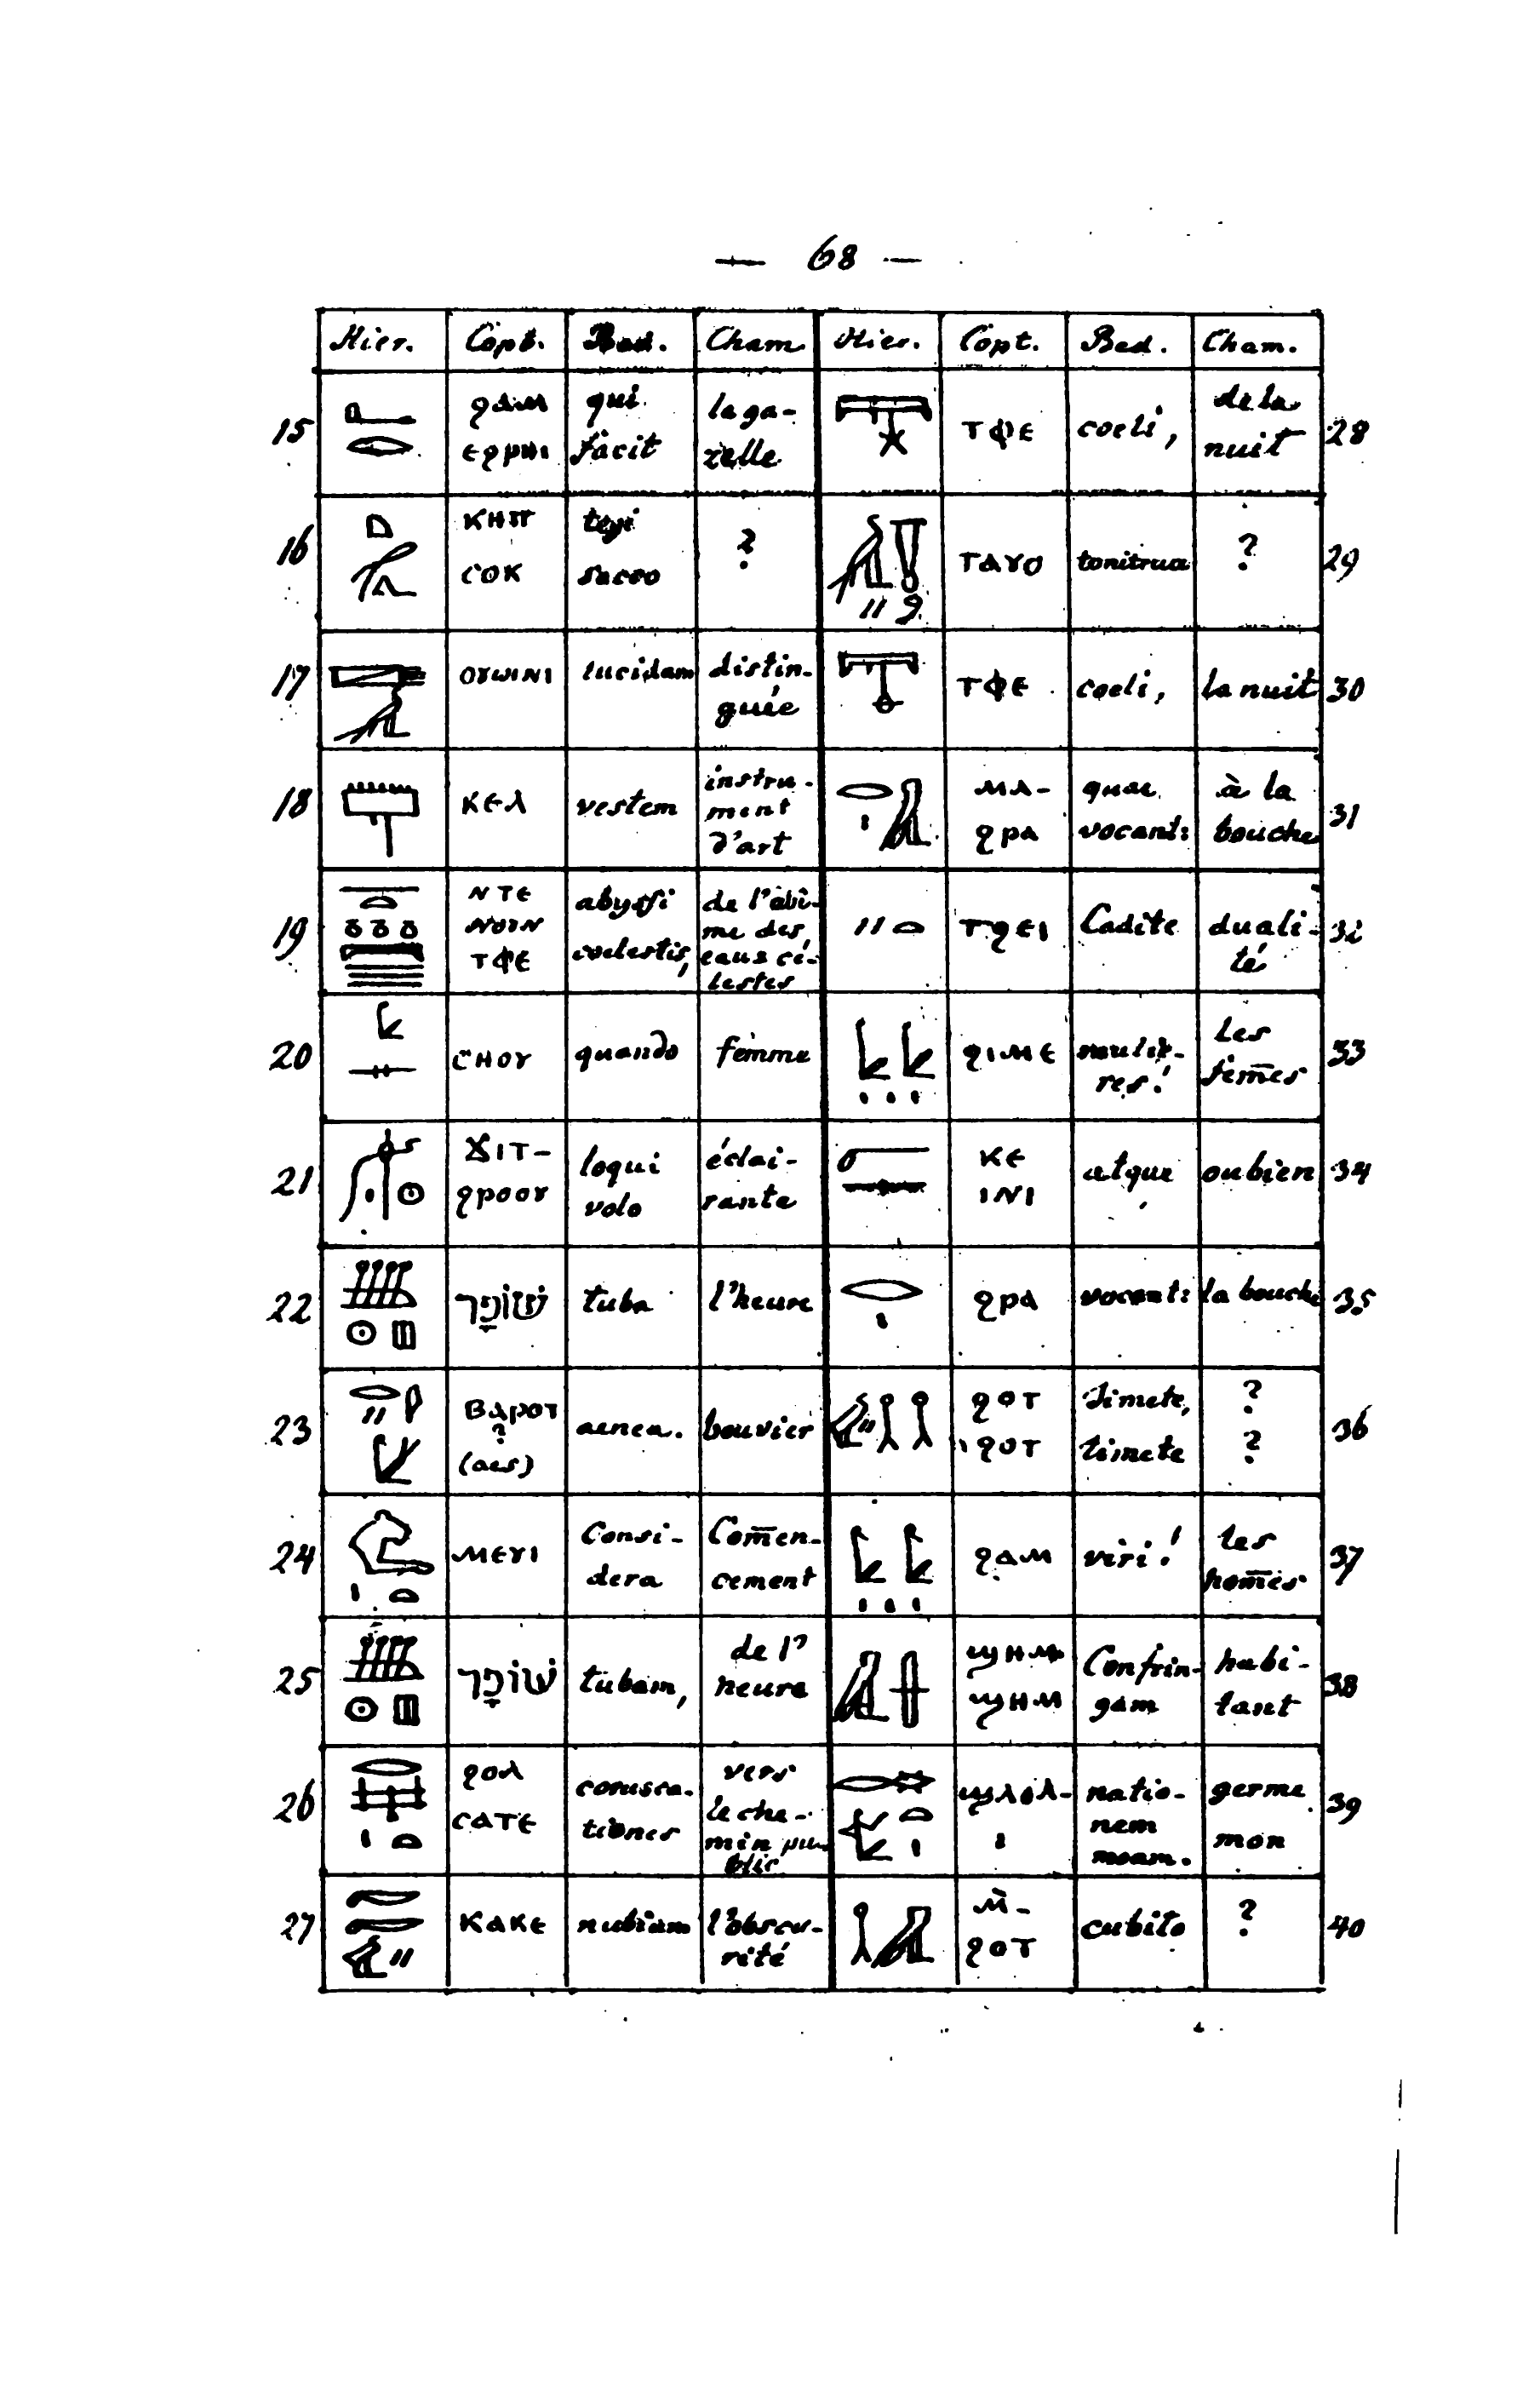 — 68 —
Hier. Copt. Bed. Cham. Hier. Copt. Bed. Cham.
15 ϩⲁⲙ ⲉϩⲣⲏⲓ qui facit la ga- zelle ⲧⲫⲉ coeli, de la nuit 28
16 ⲕⲏⲡ ⲥⲟⲕ tegi sacco ? ⲧⲁⲩⲟ tonitrua ? 29
17 ⲟⲩⲱⲓⲛⲓ lucidam distin- guée ⲧⲫⲉ coeli, la nuit 30
18 ⲕⲉⲗ vestem instru- ment d'art ⲙⲁ- ϩⲣⲁ quae vocant: à la bouche 31
19 ⲛⲧⲉ ⲛⲟⲩⲛ ⲧⲫⲉ abyssi coelestis, de l'abî- me des eaux cé- lestes ⲧϩⲉⲓ Cadite duali- té 32
20 ⲥⲏⲟⲩ quando femme ϩⲓⲙⲉ mulie- res! les fem̄es 33
21 ϫⲓⲧ- ϩⲣⲟⲟⲩ loqui volo éclai- rante ⲕⲉ ⲓⲛⲓ atque ou bien 34
22 שׁוֹפָר tuba l'heure ϩⲣⲁ vocant: la bouche 35
23 ⲃⲁⲣⲟⲧ ? (aes) aenea. bouvier ϩⲟⲧ ϩⲟⲧ timete, timete ? ? 36
24 ⲙⲉⲩⲓ Consi- dera Com̄en- cement ϩⲁⲙ viri! les hom̄es 37
25 שׁוֹפָר tubam, de l' heure ϣⲏⲙ ϣⲏⲙ Confrin- gam habi- tant 38
26 ϩⲟⲗ ⲥⲁⲧⲉ corusca- tiones vers le che- min pu- blic ϣⲗⲟⲗ- ⲓ natio- nem meam. germe mon 39
27 ⲕⲁⲕⲉ nubiam l'obscu- rité ⲙ̀- ϩⲟⲧ cubito ? 40